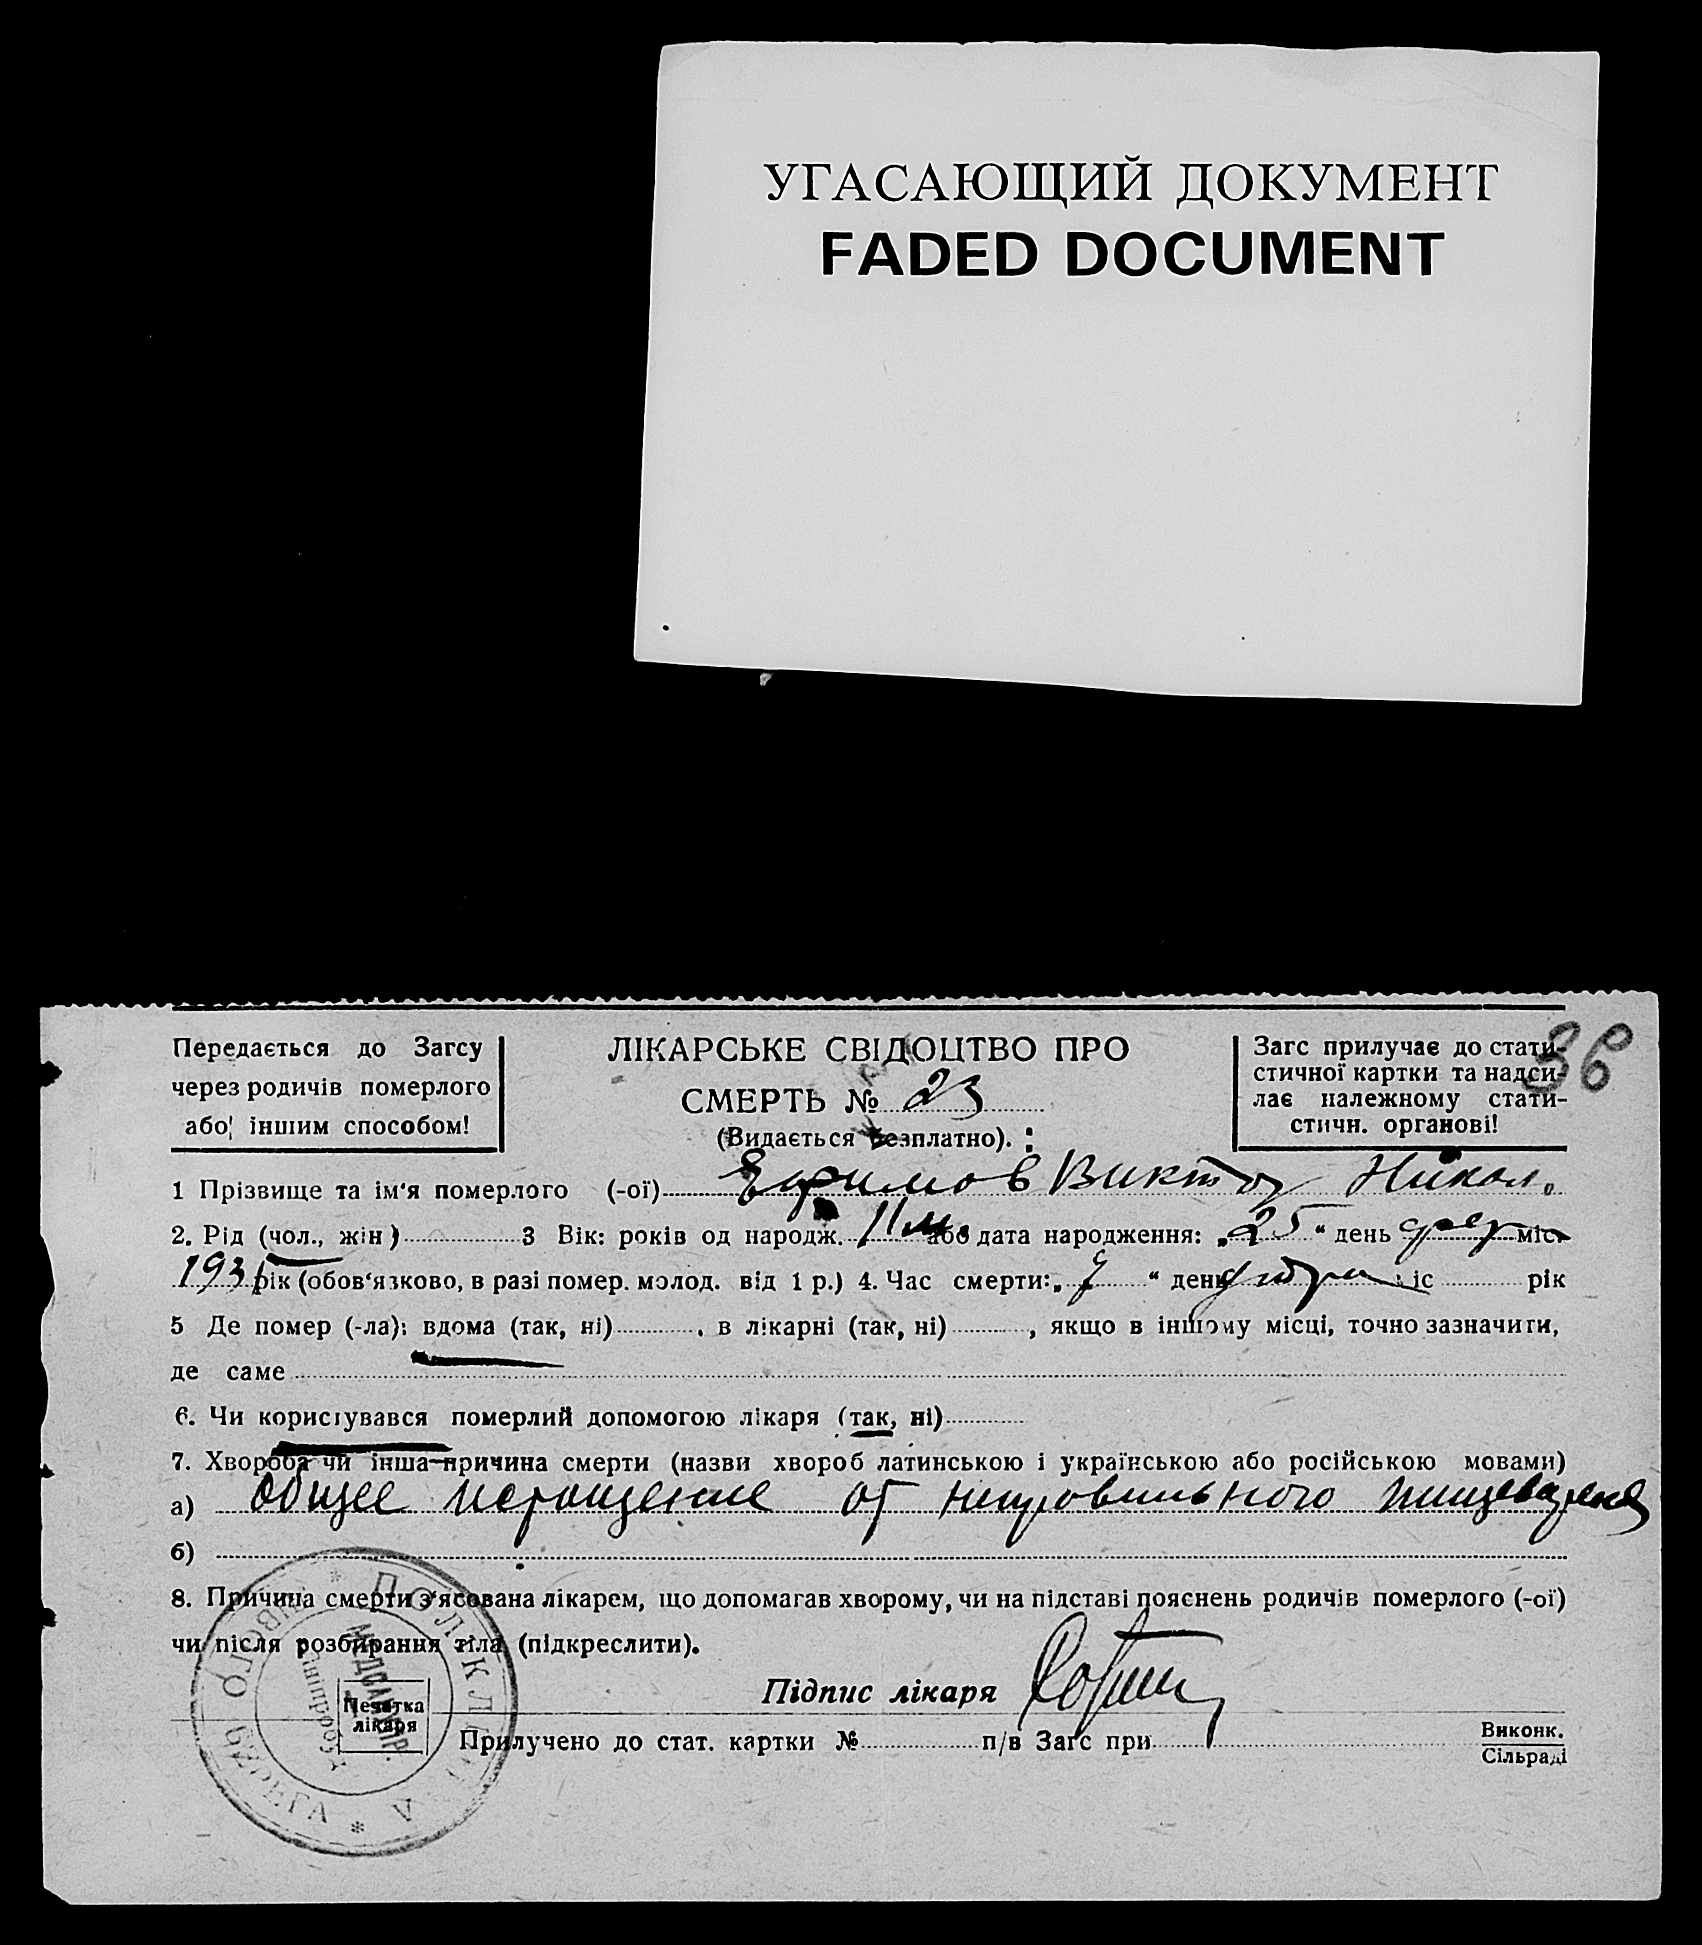 УГАСАЮЩИЙ ДОКУМЕНТ
FADED DOCUMENT
Передається до Загсу
через родичів померлого
або іншим способом!
ЛІКАРСЬКЕ СВІДОЦТВО ПРО
СМЕРТЬ № 23
(Видається безплатно).
Загс прилучає до стати-
стичної картки та надси-
лає належному стати-
стичн. органові!
36
1 Прізвище та ім'я померлого (-ої) Ефимов Виктор Никол.
2. Рід (чол., жін) 3 Вік: років од народж. 11 м. або дата народження: „25“ день фев міс.
193 рік (обов'язково, в разі помер. молод. від 1 р.) 4. Час смерти: „ “ день міс рік
5 Де помер (-ла); вдома (так, ні) , в лікарні (так, ні) , якщо в іншому місці, точно зазначити,
де саме
6. Чи користувався померлий допомогою лікаря (так, ні)
7. Хвороба чи інша причина смерти (назви хвороб латинською і українською або російською мовами)
а) Общее истощение от неправильного пищеварения
б)
8. Причина смерти з'ясована лікарем, що допомагав хворому, чи на підставі пояснень родичів померлого (-ої)
чи після розбирання тіла (підкреслити).
Підпис лікаря
Печатка
лікаря
Прилучено до стат. картки № п/в Загс при
Виконк.
Сільраді
ПОЛІКЛ
БЕРЕГА